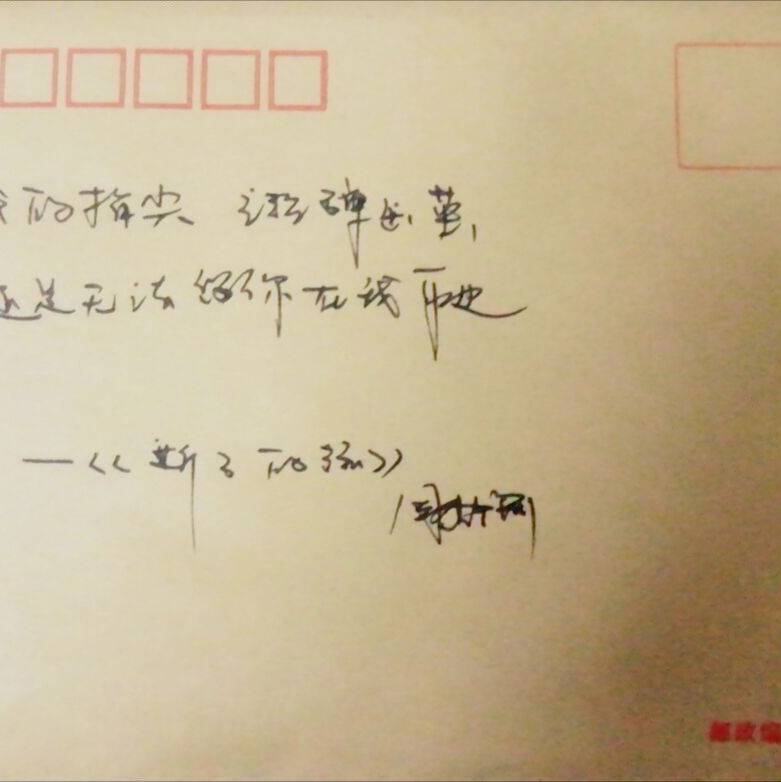 的指尖 已经弹出茧,
还是无法留你在我身边
——《断了的弦》
周杰
邮政编